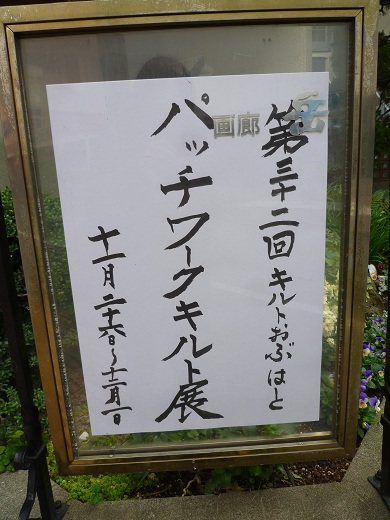 画廊 岳
第三十二回 キルト・おぶ はと
パッチワークキルト展
十一月二十六日～十二月一日